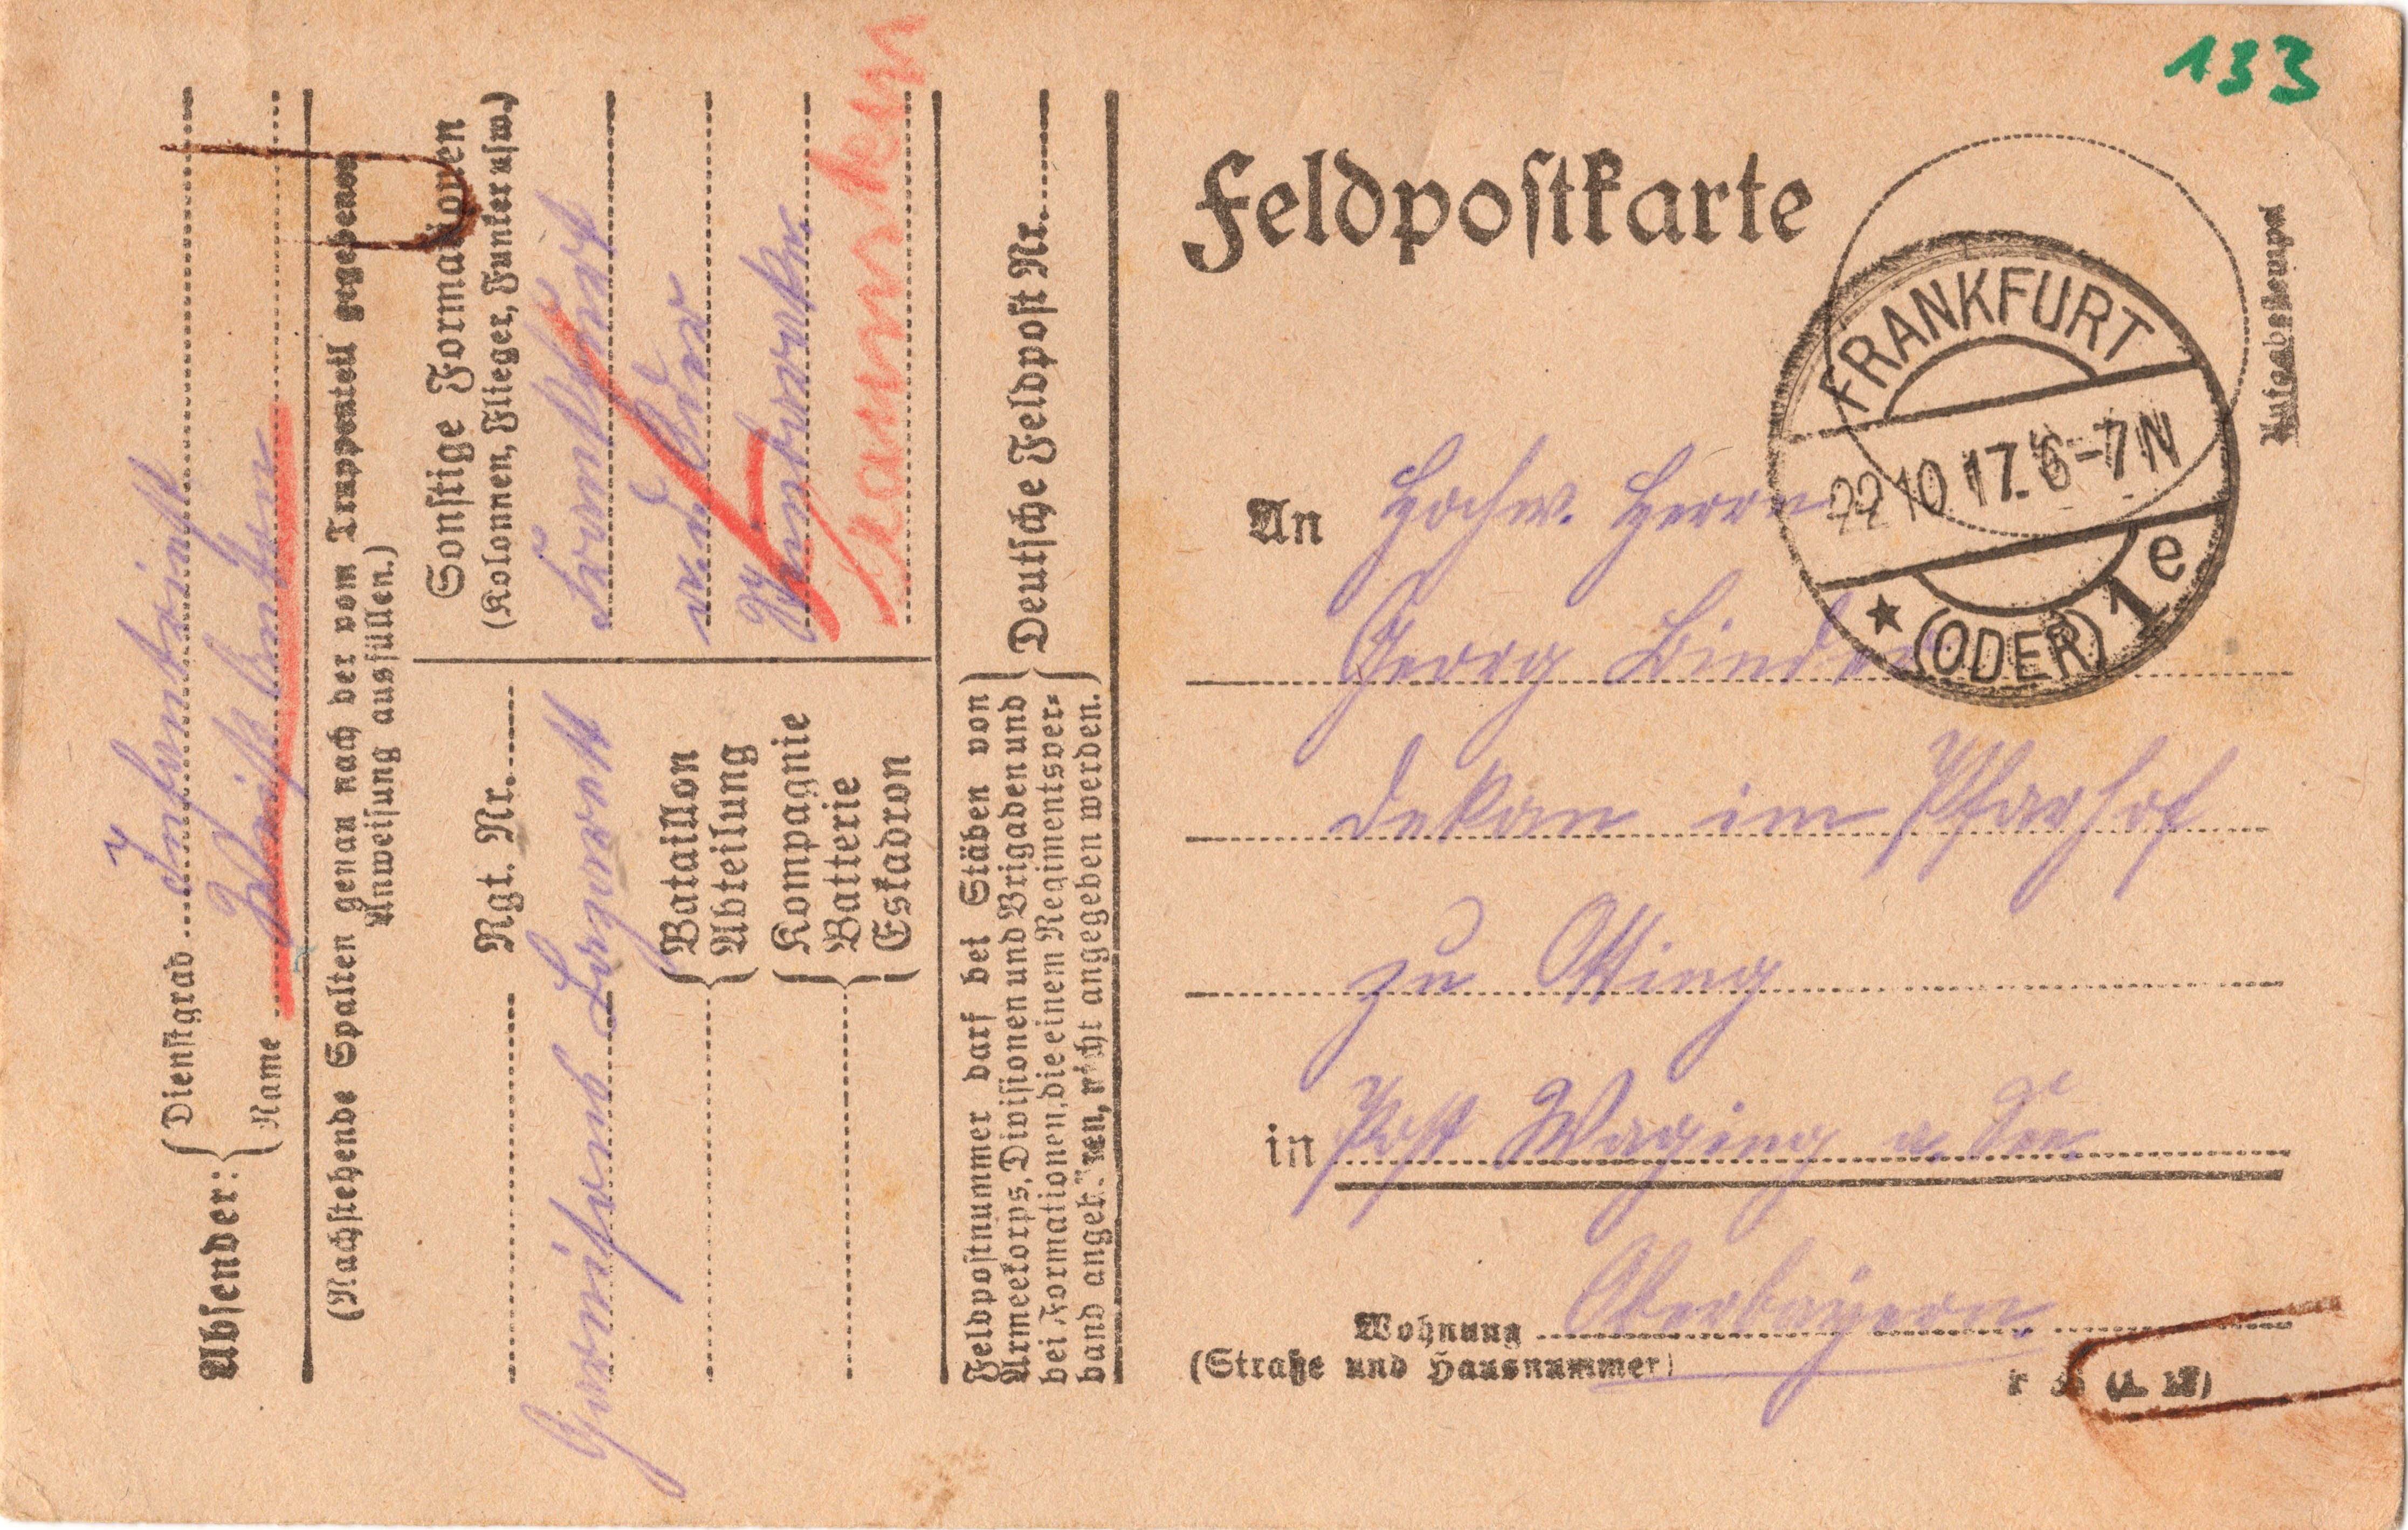 133
Feldpostkarte
Aufgabestempel
FRANKFURT
22.10.17. 6-7N
* (ODER) 1 e
An Hochw. Herrn
Georg Binder
Dekan im Pfarhof
zu Otting
in Post Waging a. See
Oberbayern
Wohnung
(Straße und Hausnummer)
Absender:
Dienstgrad Infantrist
Name
(Nachstehende Spalten genau nach der vom Truppenteil gegebenen
Anweisung ausfüllen.)
Rgt. Nr.
Garnisons Lazarett
Bataillon
Abteilung
Kompagnie
Batterie
Eskadron
Sonstige Formationen
(Kolonnen, Flieger, Funker usw.)
Frankfurt
a. d. Oder
Feldpostnummer darf bei Stäben von
Armeekorps, Divisionen und Brigaden und
bei Formationen, die einem Regimentsver-
band angehören, nicht angegeben werden.
Deutsche Feldpost Nr.